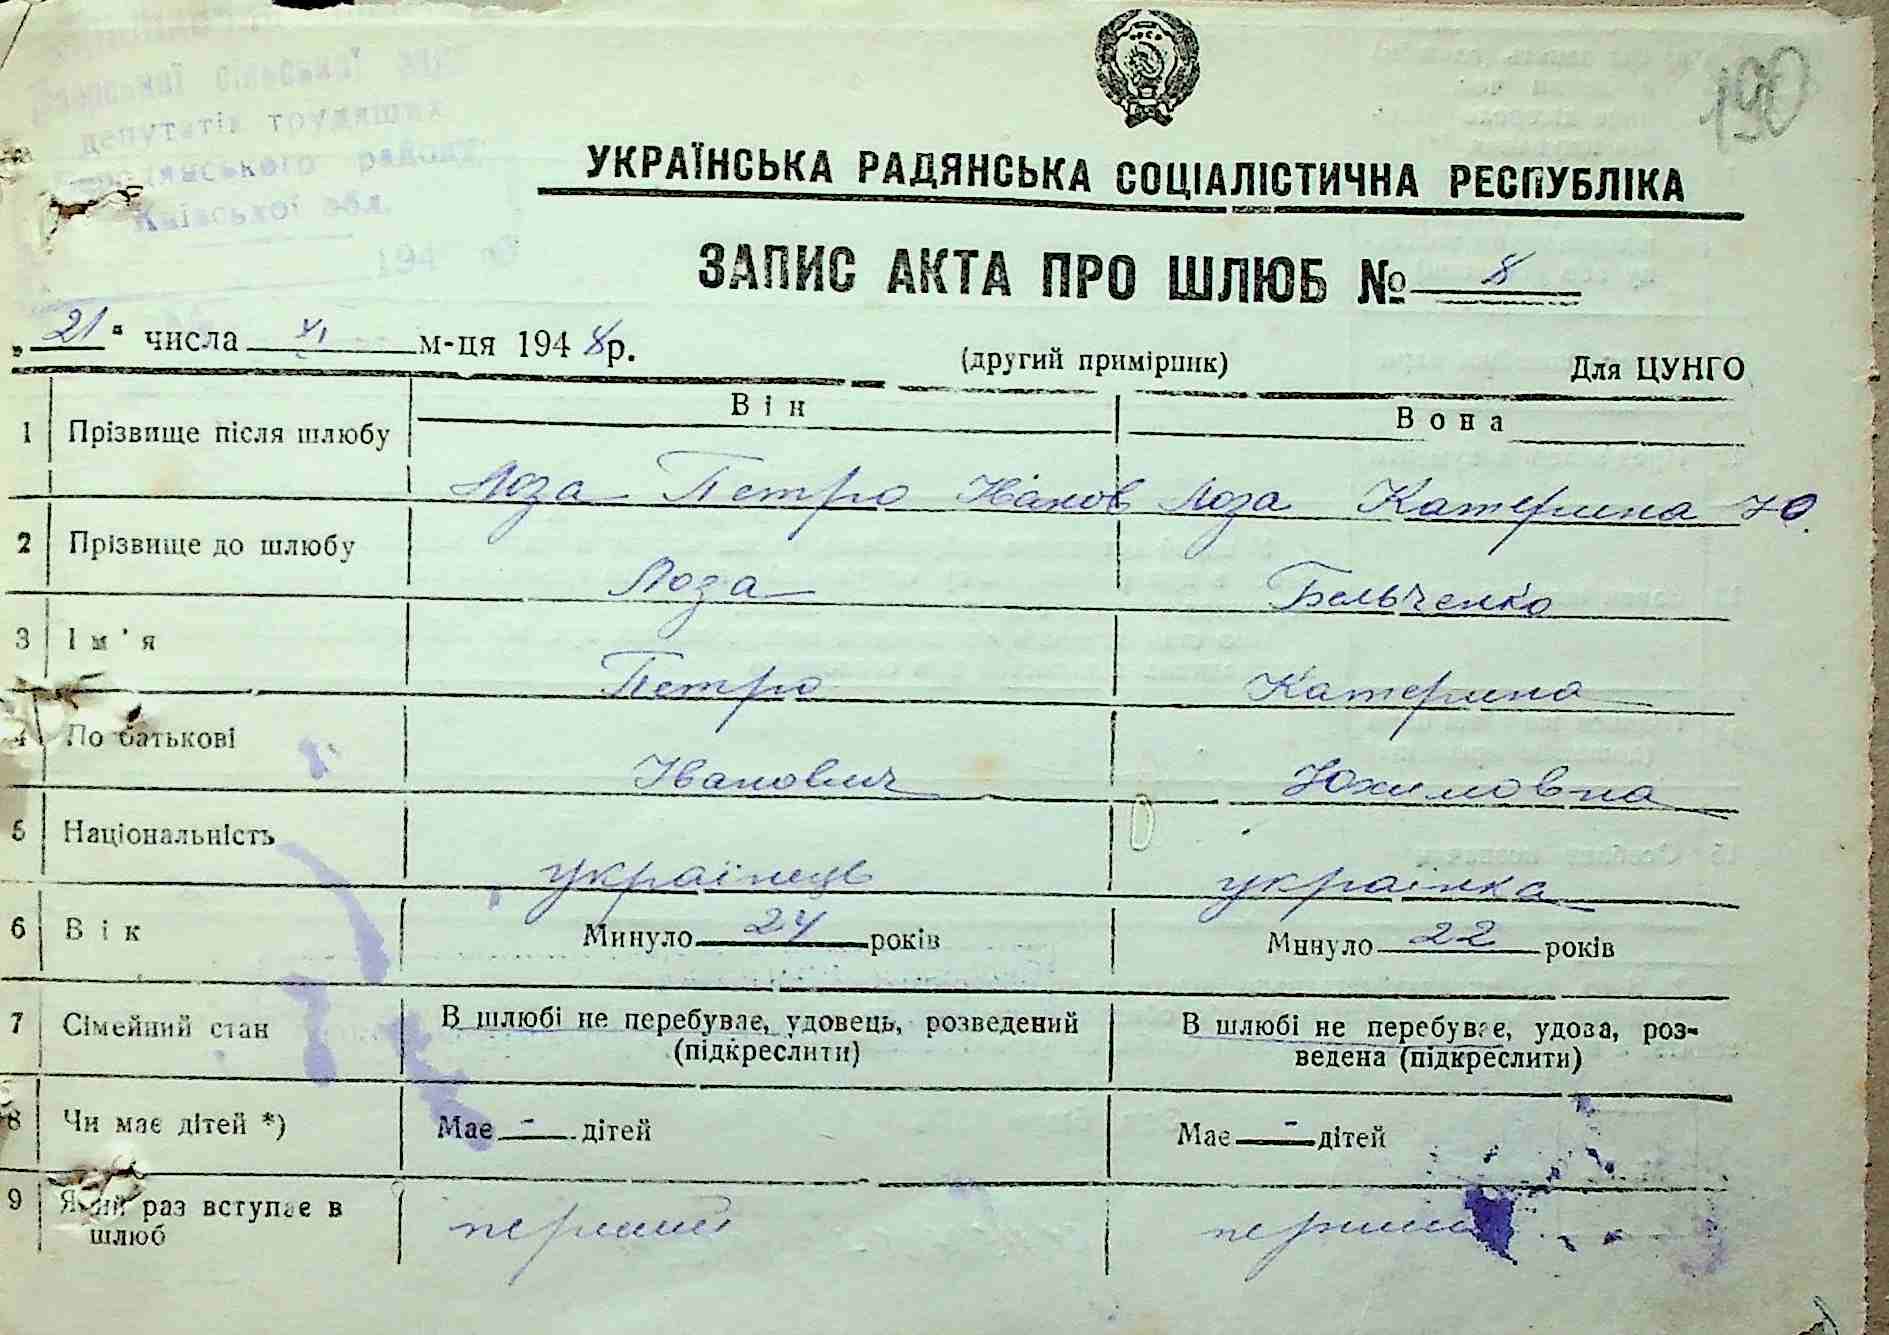 депутатів трудящих
району
Київської обл.
194
190
УКРАЇНСЬКА РАДЯНСЬКА СОЦІАЛІСТИЧНА РЕСПУБЛІКА
ЗАПИС АКТА ПРО ШЛЮБ № 8
„21" числа XI м-ця 1948 р. (другий примірник) Для ЦУНГО
Він Вона
1 Прізвище після шлюбу
Лоза Петро Іванов Лоза Катерина Ю.
2 Прізвище до шлюбу
Лоза Бельченко
3 Ім'я
Петро Катерина
4 По батькові
Іванович Юхимовна
5 Національність
українець українка
6 Вік Минуло 24 років Минуло 22 років
7 Сімейний стан В шлюбі не перебуває, удовець, розведений В шлюбі не перебуває, удова, роз-
(підкреслити) ведена (підкреслити)
8 Чи має дітей *) Має - дітей Має - дітей
9 Який раз вступає в
шлюб
перший перший